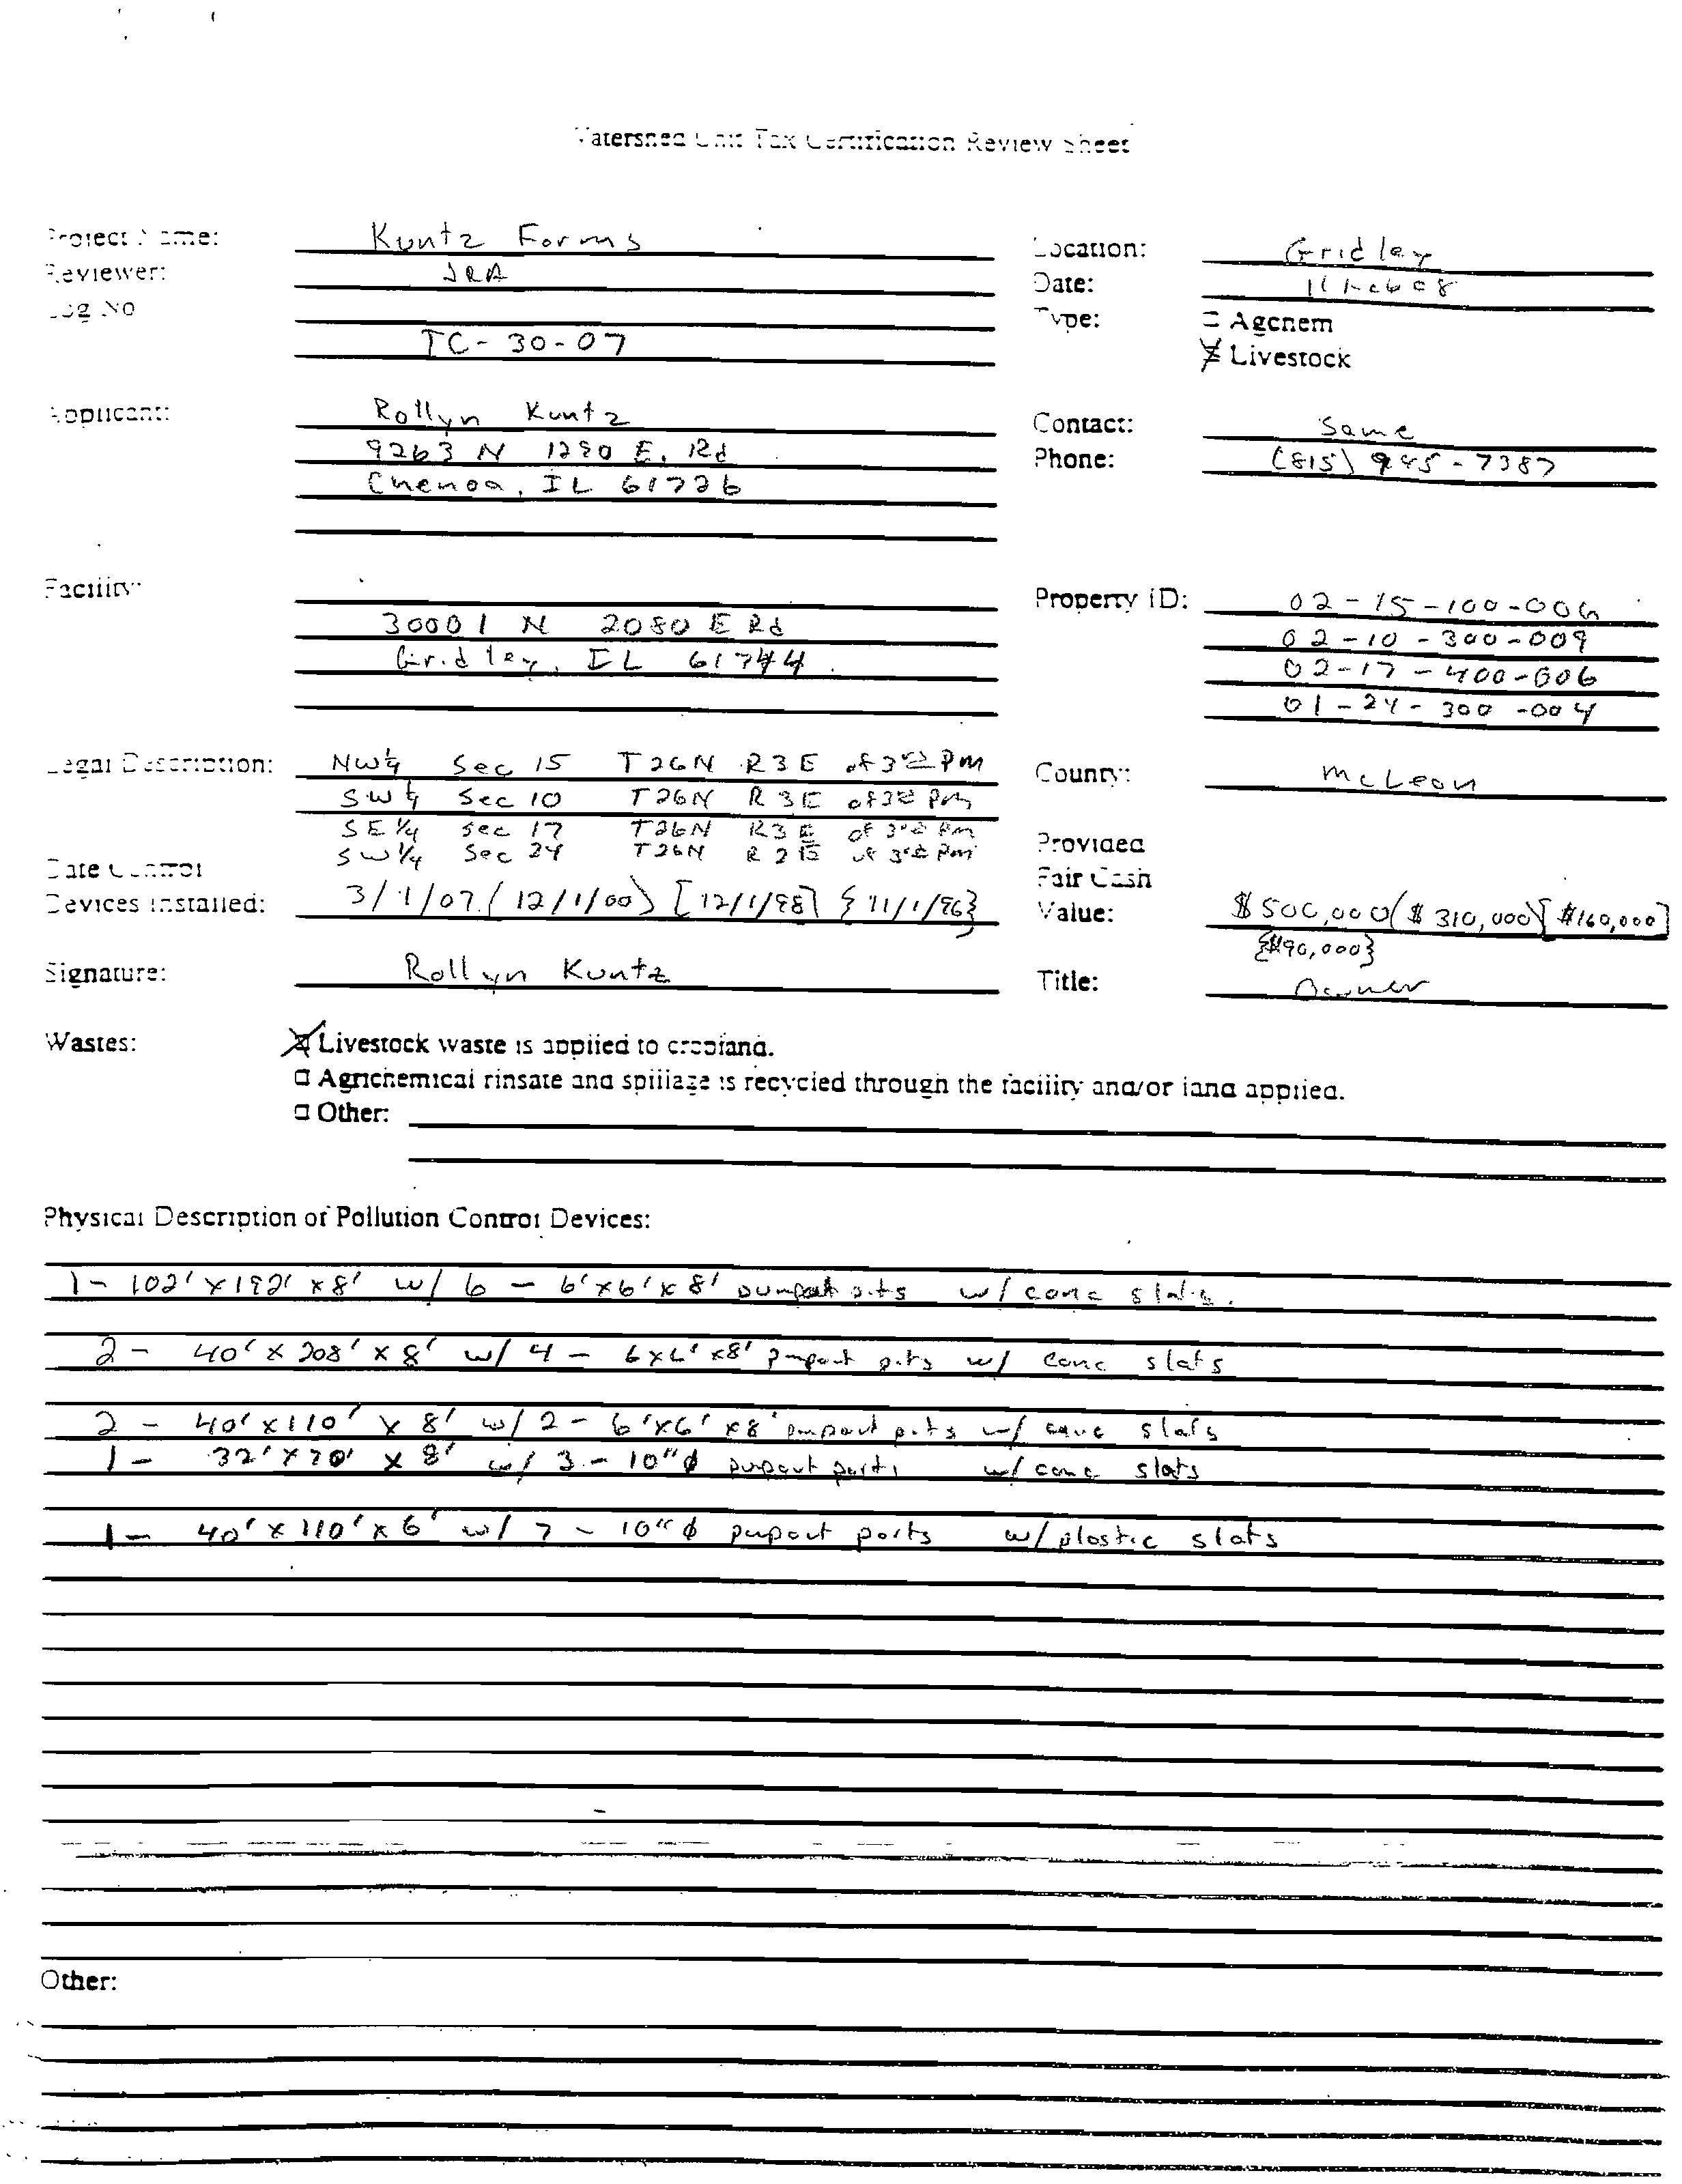 Watershed Unit Tax Certification Review Sheet
Project Name: Kuntz Farms
Location: Gridley
Reviewer: JRA
Date: 11 Feb 08
Log No
TC-30-07
Type: □ Agchem
☒ Livestock
Applicant: Rollyn Kuntz
Contact: Same
9263 N 1280 E. Rd
Phone: (815) 945-7387
Chenoa, IL 61726
Facility:
30001 N 2080 E Rd
Gridley, IL 61744
Property ID: 02-15-100-006
02-10-300-009
02-17-400-006
01-24-300-004
Legal Description: NW¼ Sec 15 T26N R3E of 3rd PM
SW¼ Sec 10 T26N R3E of 3rd PM
SE ¼ Sec 17 T26N R3E of 3rd PM
SW ¼ Sec 24 T26N R2E of 3rd PM
County: McLean
Date Control
Devices Installed: 3/1/07 (12/1/00) [12/1/98] {11/1/96}
Provided
Fair Cash
Value: $500,000 ($310,000) [$160,000]
{$90,000}
Signature: Rollyn Kuntz
Title: Owner
Wastes: ☒ Livestock waste is applied to cropland.
□ Agrichemical rinsate and spillage is recycled through the facility and/or land applied.
□ Other:
Physical Description of Pollution Control Devices:
1 - 102' x 192' x 8' w/ 6 - 6'x6'x8' pumpout pits w/ conc slats.
2 - 40' x 208' x 8' w/ 4 - 6x6' x8' pumpout pits w/ conc slats
2 - 40'x110' x 8' w/ 2 - 6'x6'x8' pumpout pits w/ conc slats
1 - 32'x70' x 8' w/ 3 - 10"ø pupout ports w/ conc slats
1 - 40' x 110' x 6' w/ 7 - 10"ø pupout ports w/ plastic slats
Other: